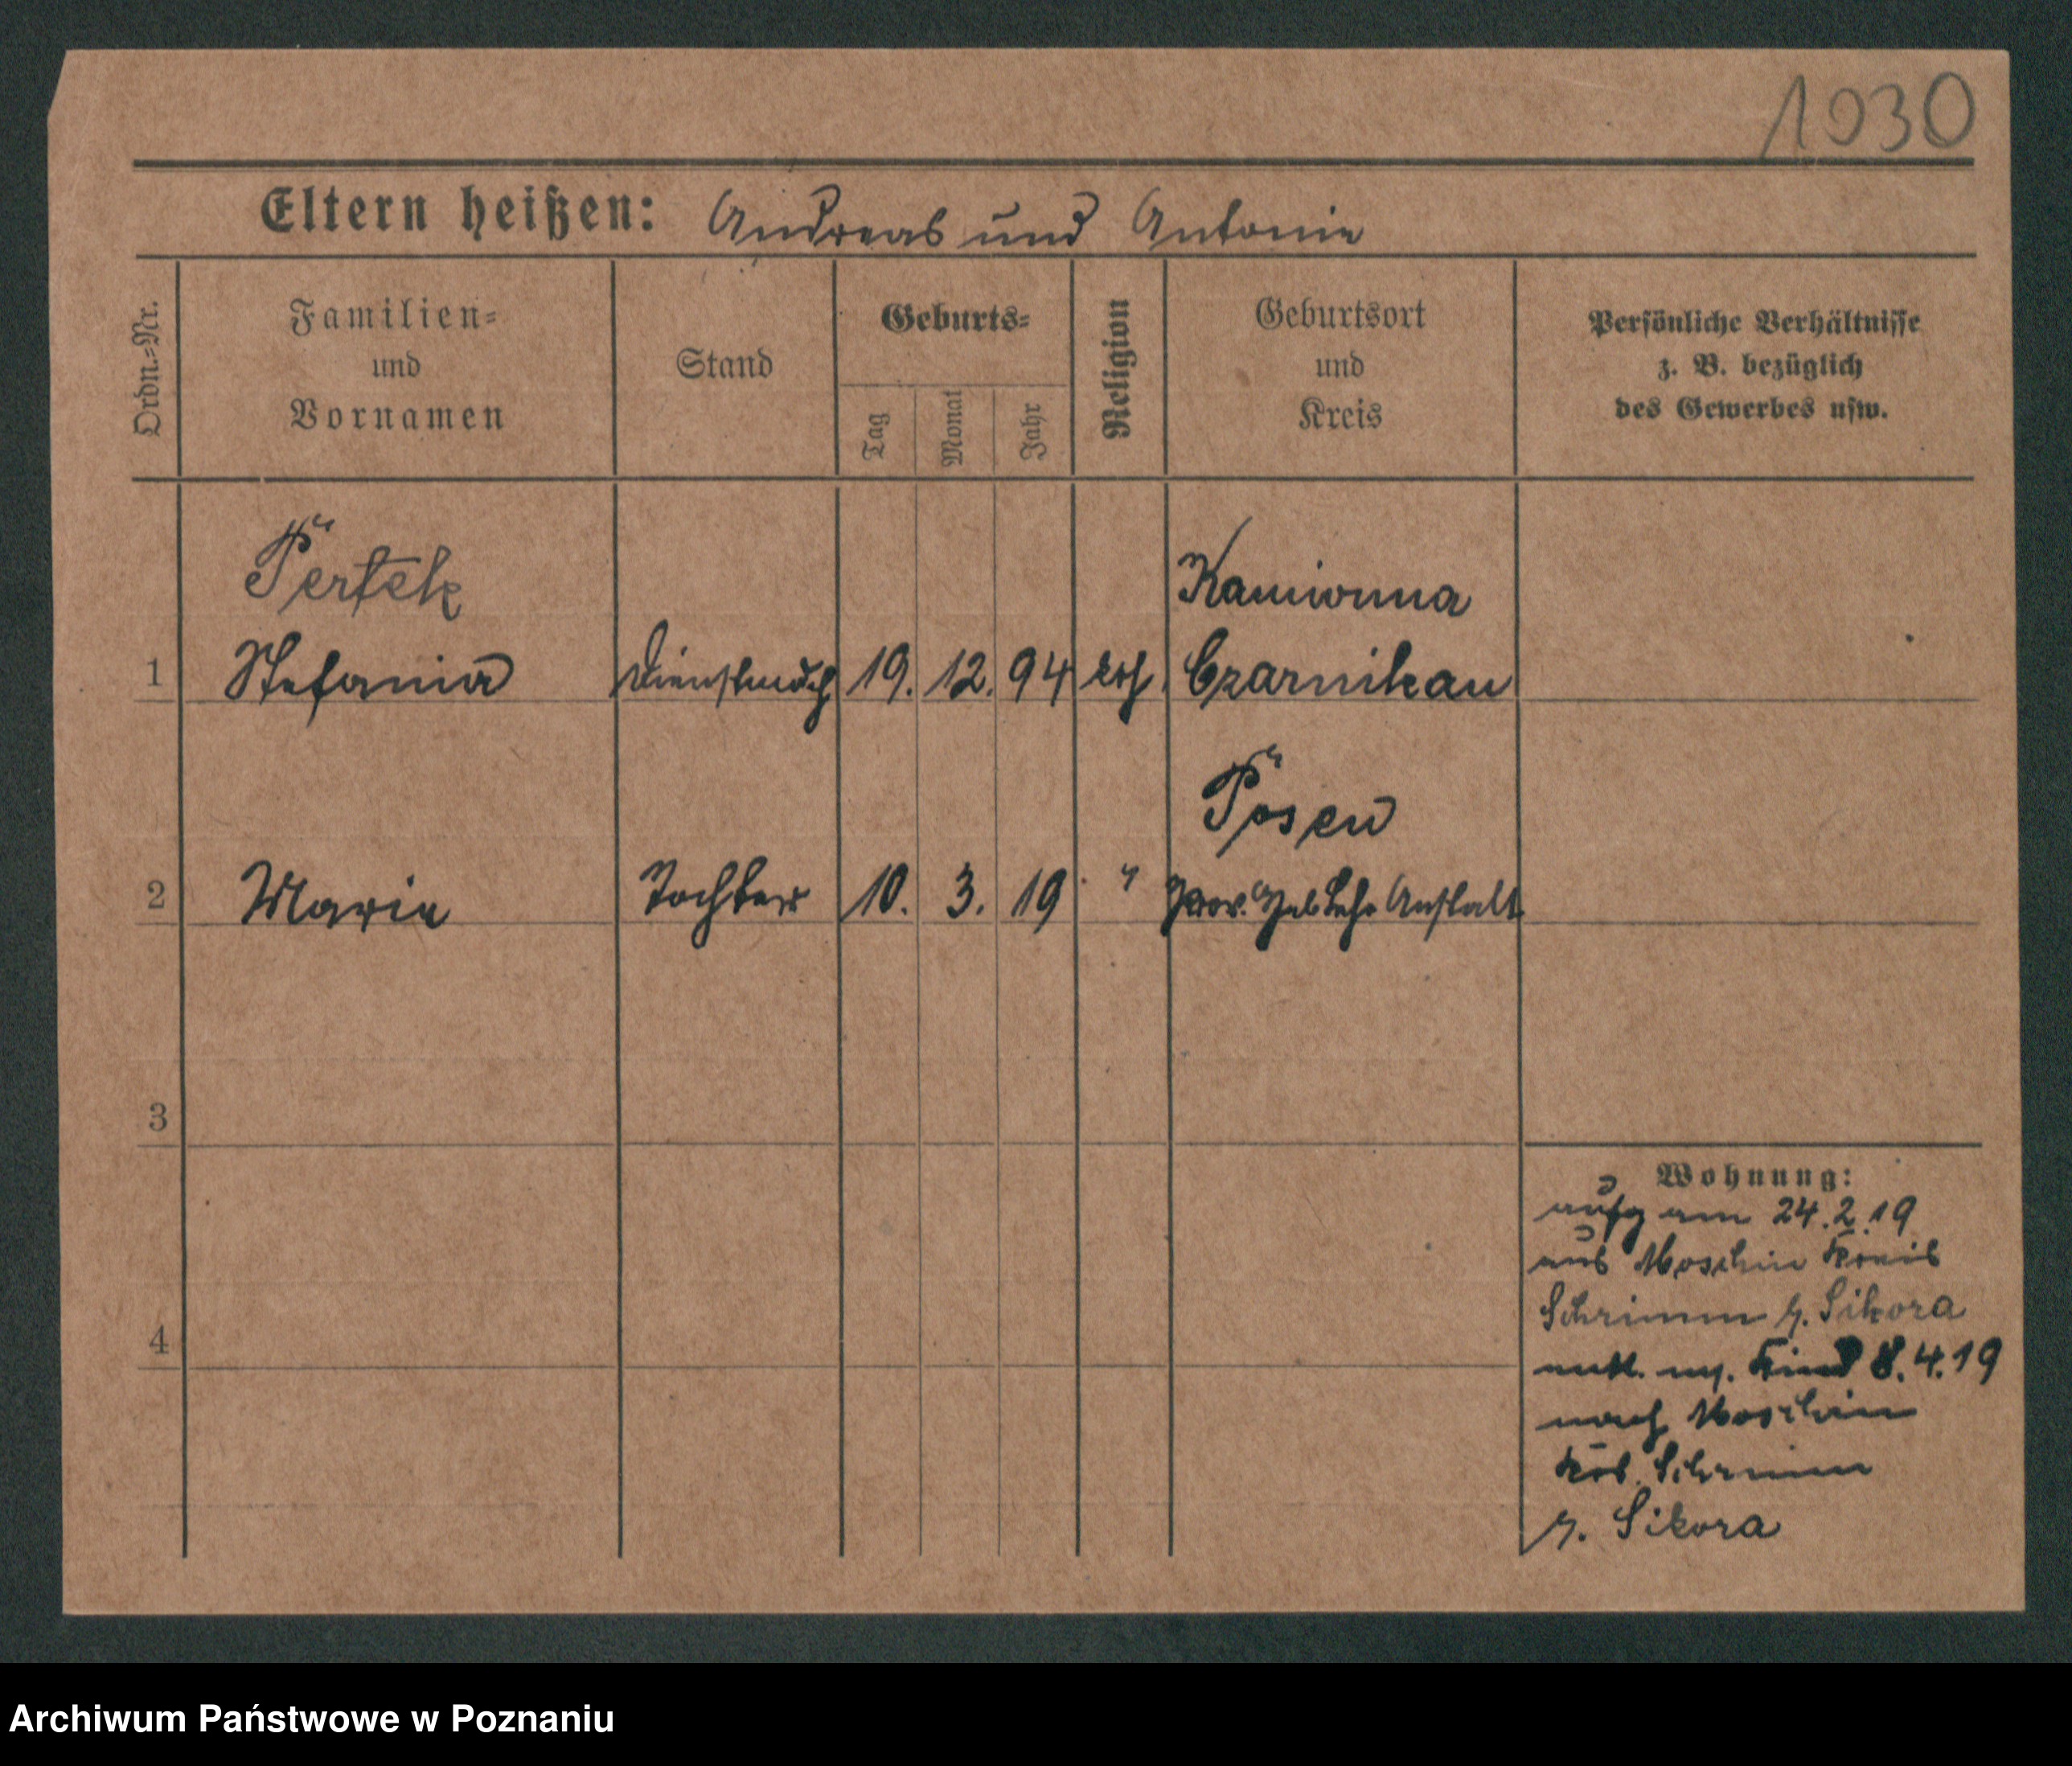 1030
Eltern heißen: Andreas und Antonie
Ordn.=Nr.
Familien=
und
Vornamen
Stand
Geburts=
Tag
Monat
Jahr
Religion
Geburtsort
und
Kreis
Persönliche Verhältnisse
z. B. bezüglich
des Gewerbes usw.
Pertek
Kamionna
1 Stefania Dienstmdch 19. 12. 94 kth. Czarnikau
Posen
2 Marie Tochter 10. 3. 19 " Prov. Heb Lehr Anstalt
3
Wohnung:
aufg am 24.2.19
aus Moschin Kreis
4
Schrimm z. Sikora
Kind 8.4.19
nach Moschin
Krs. Schrimm
z. Sikora
Archiwum Państwowe w Poznaniu